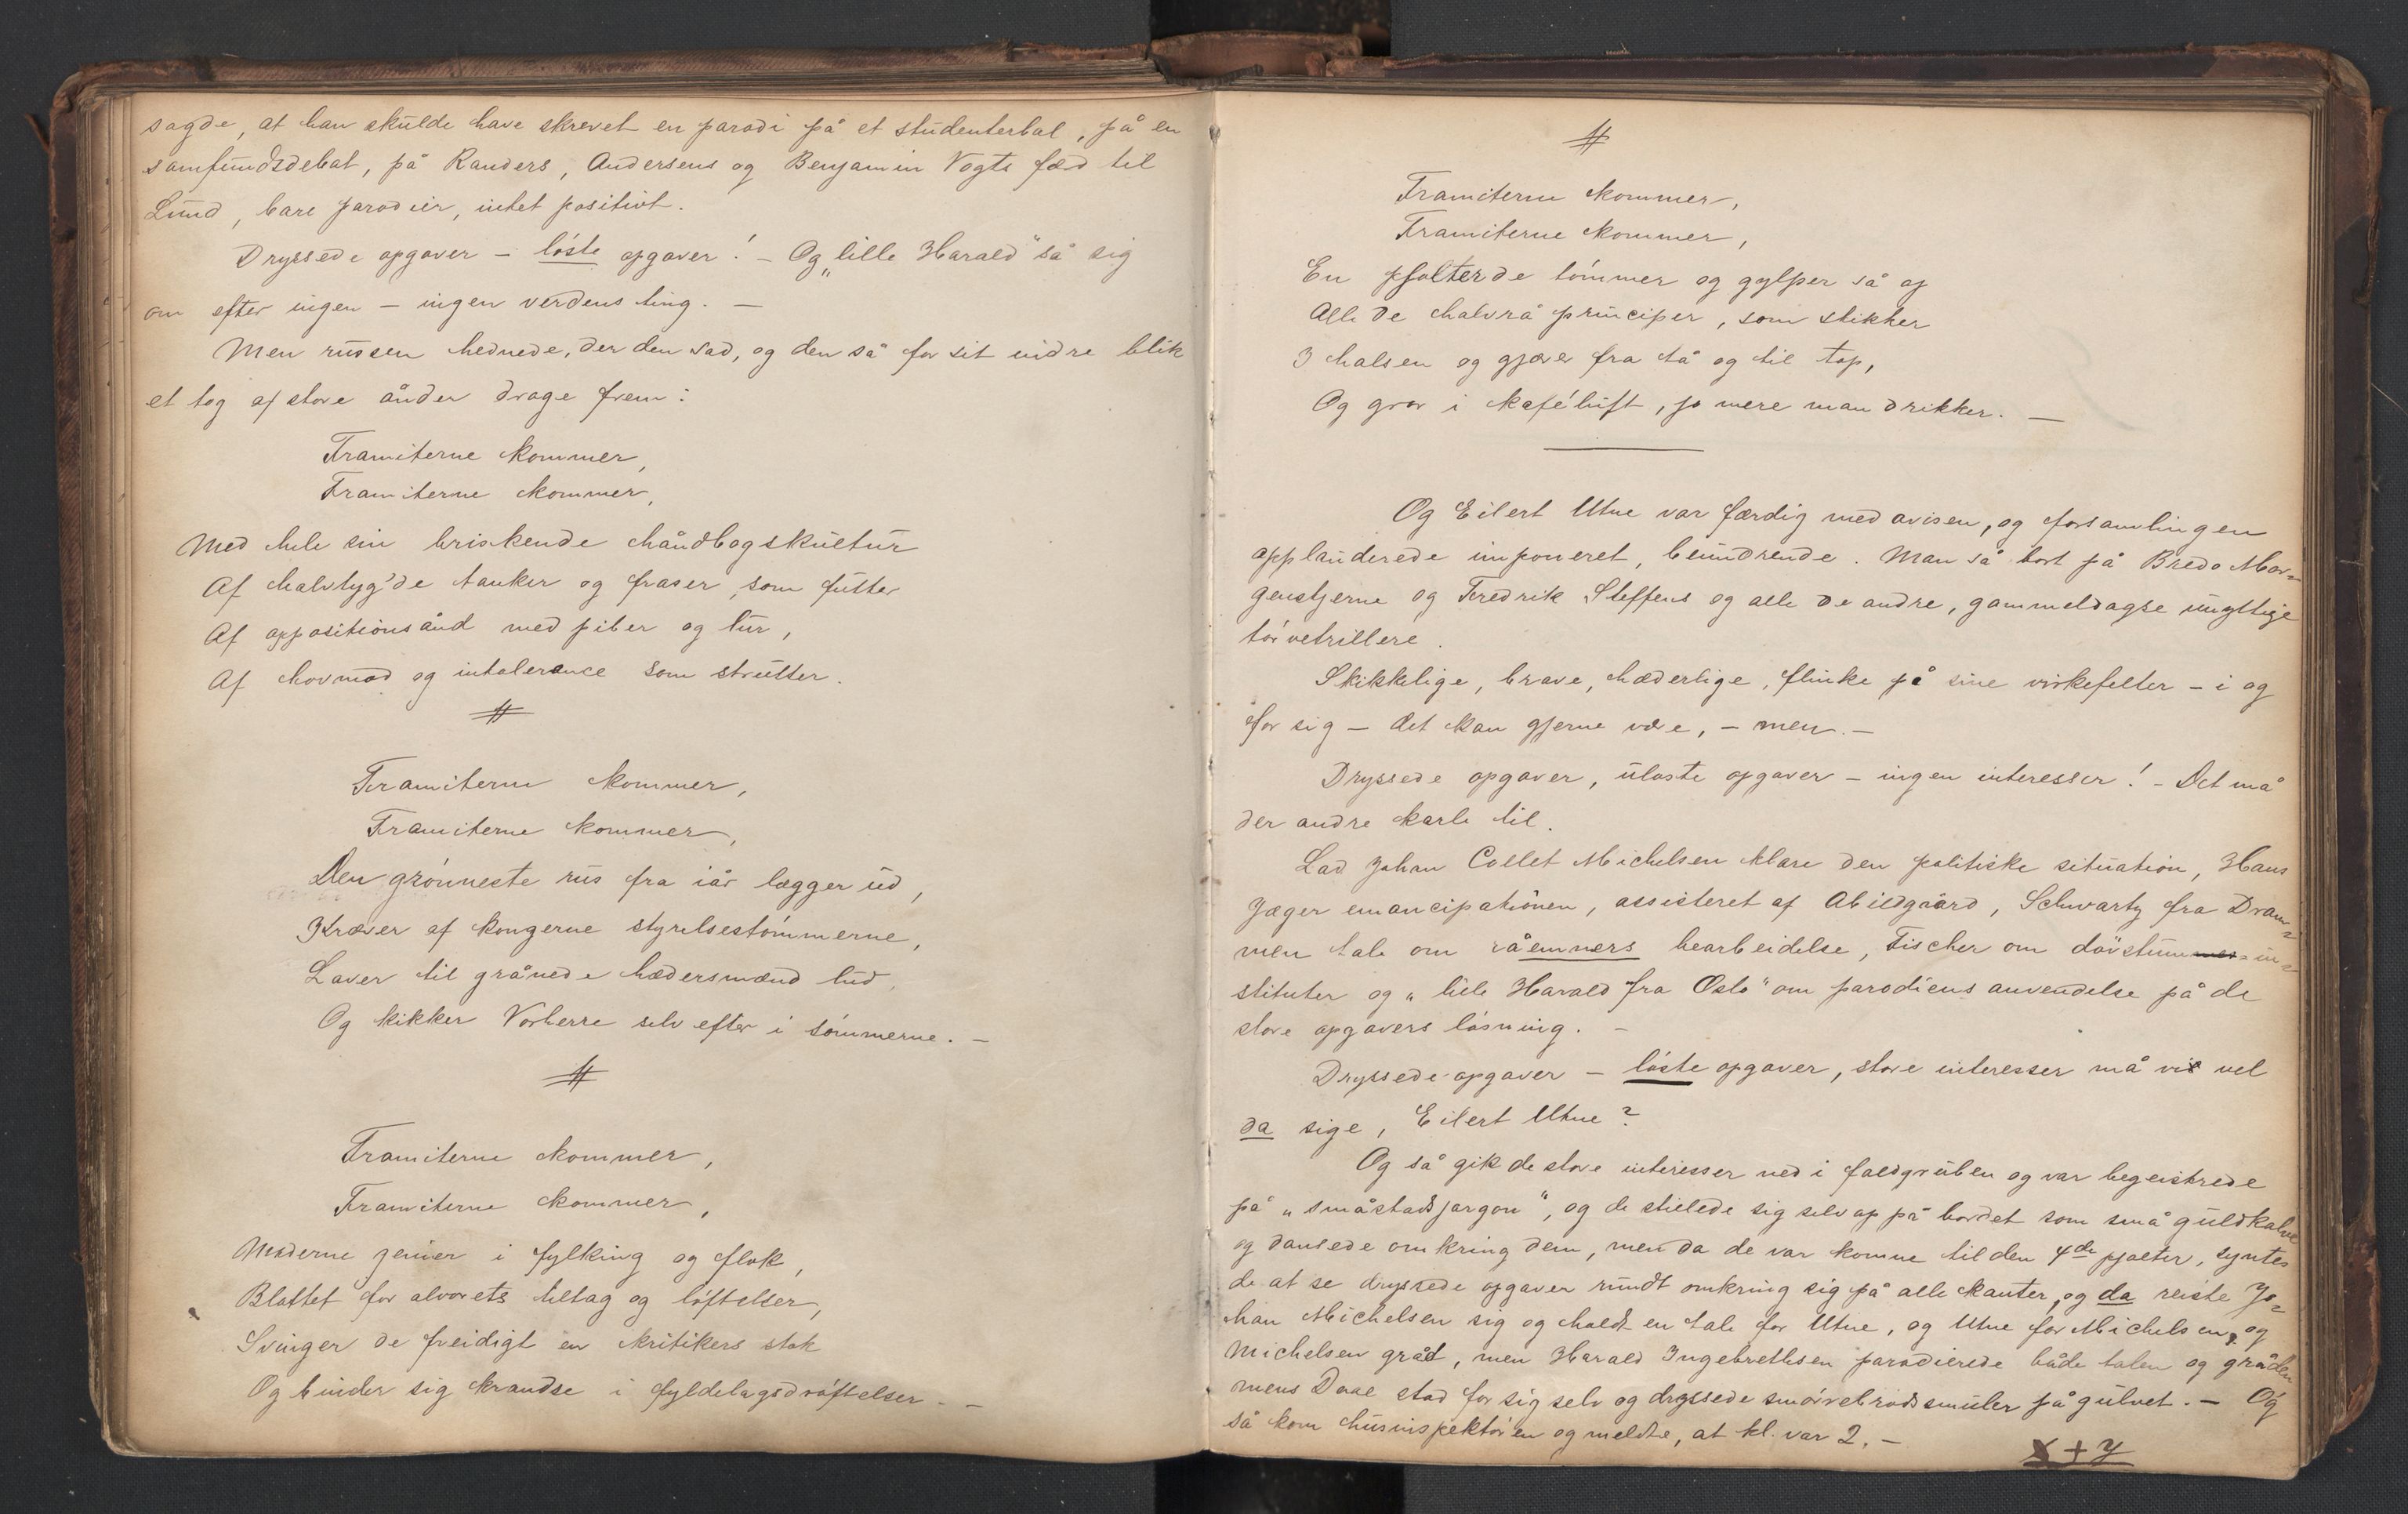 sagde, at han skulde have skrevet en parodi på et studenterbal, på en
samfundsdebat, på Randers, Andersens og Benjamin Vogts færd til
Lund, bare parodier, intet positivt.
Dryssede opgaver – løste opgaver! – Og „lille Harald" så sig
om efter ingen – ingen verdens ting. –
Men russen hednede, der den sad, og den så for sit indre blik
et tog af store ånder drage frem:
Framiterne kommer,
Framiterne kommer,
Med hele sin briskende håndbogskultur
Af halvtyg'de tanker og fraser, som futter
Af oppositionsånd med piber og lur,
Af hovmod og intolerance som strutter.
#
Framiterne kommer,
Framiterne kommer,
Den grønneste rus fra iår lægger ud,
Kræver af kongerne styrelsestømmerne,
Laver til grånede hædersmænd lud,
Og kikker Vorherre selv efter i sømmerne. –
#
Framiterne kommer,
Framiterne kommer,
Moderne genier i fylking og flok,
Blottet for alvorets tiltag og løftelser,
Svinger de freidigt en kritikers stok
Og binder sig krandse i fyldelagsdrøftelser. –
#
Framiterne kommer,
Framiterne kommer,
En pjolter de tømmer og gylper så op
Alle de halvrå principer, som stikker
I halsen og gjærer fra tå og til top,
Og gror i kaféluft, jo mere man drikker. –
Og Eilert Utne var færdig med avisen, og forsamlingen
applauderede imponeret, beundrende. Man så bort på Bredo Mor=
genstjerne og Fredrik Steffens og alle de andre, gammeldagse unyttige
tørvetrillere.
Skikkelige, brave, hæderlige, flinke på sine virkefelter – i og
for sig – det kan gjerne være, – men. –
Dryssede opgaver, uløste opgaver – ingen interesser! – Det må
der andre karle til.
Lad Johan Collet Michelsen klare den politiske situation, Hans
Jæger emancipationen, assisteret af Abildgaard, Schwartz fra Dram=
men tale om råemners bearbeidelse, Fischer om døvstumme=in=
stituter og „lille Harald fra Oslo" om parodiens anvendelse på de
store opgavers løsning. –
Dryssede opgaver – løste opgaver, store interesser må vi vel
da sige, Eilert Utne?
Og så gik de store interesser ned i faldgruben og var begeistrede
på „småstadsjargon", og de stillede sig selv op på bordet som små guldkalve
og dansede omkring dem, men da de var komne til den 4de pjolter, syntes
de at se dryssede opgaver rundt omkring sig på alle kanter, og da reiste Jo=
han Michelsen sig og holdt en tale for Utne, og Utne for Michelsen, og
Michelsen græd, men Harald Ingebrethsen parodierede både talen og gråden
mens Daae stod for sig selv og dryssede smørrebrødssmuler på gulvet. – Og
så kom husinspektøren og meldte, at kl. var 2. –
X + Y